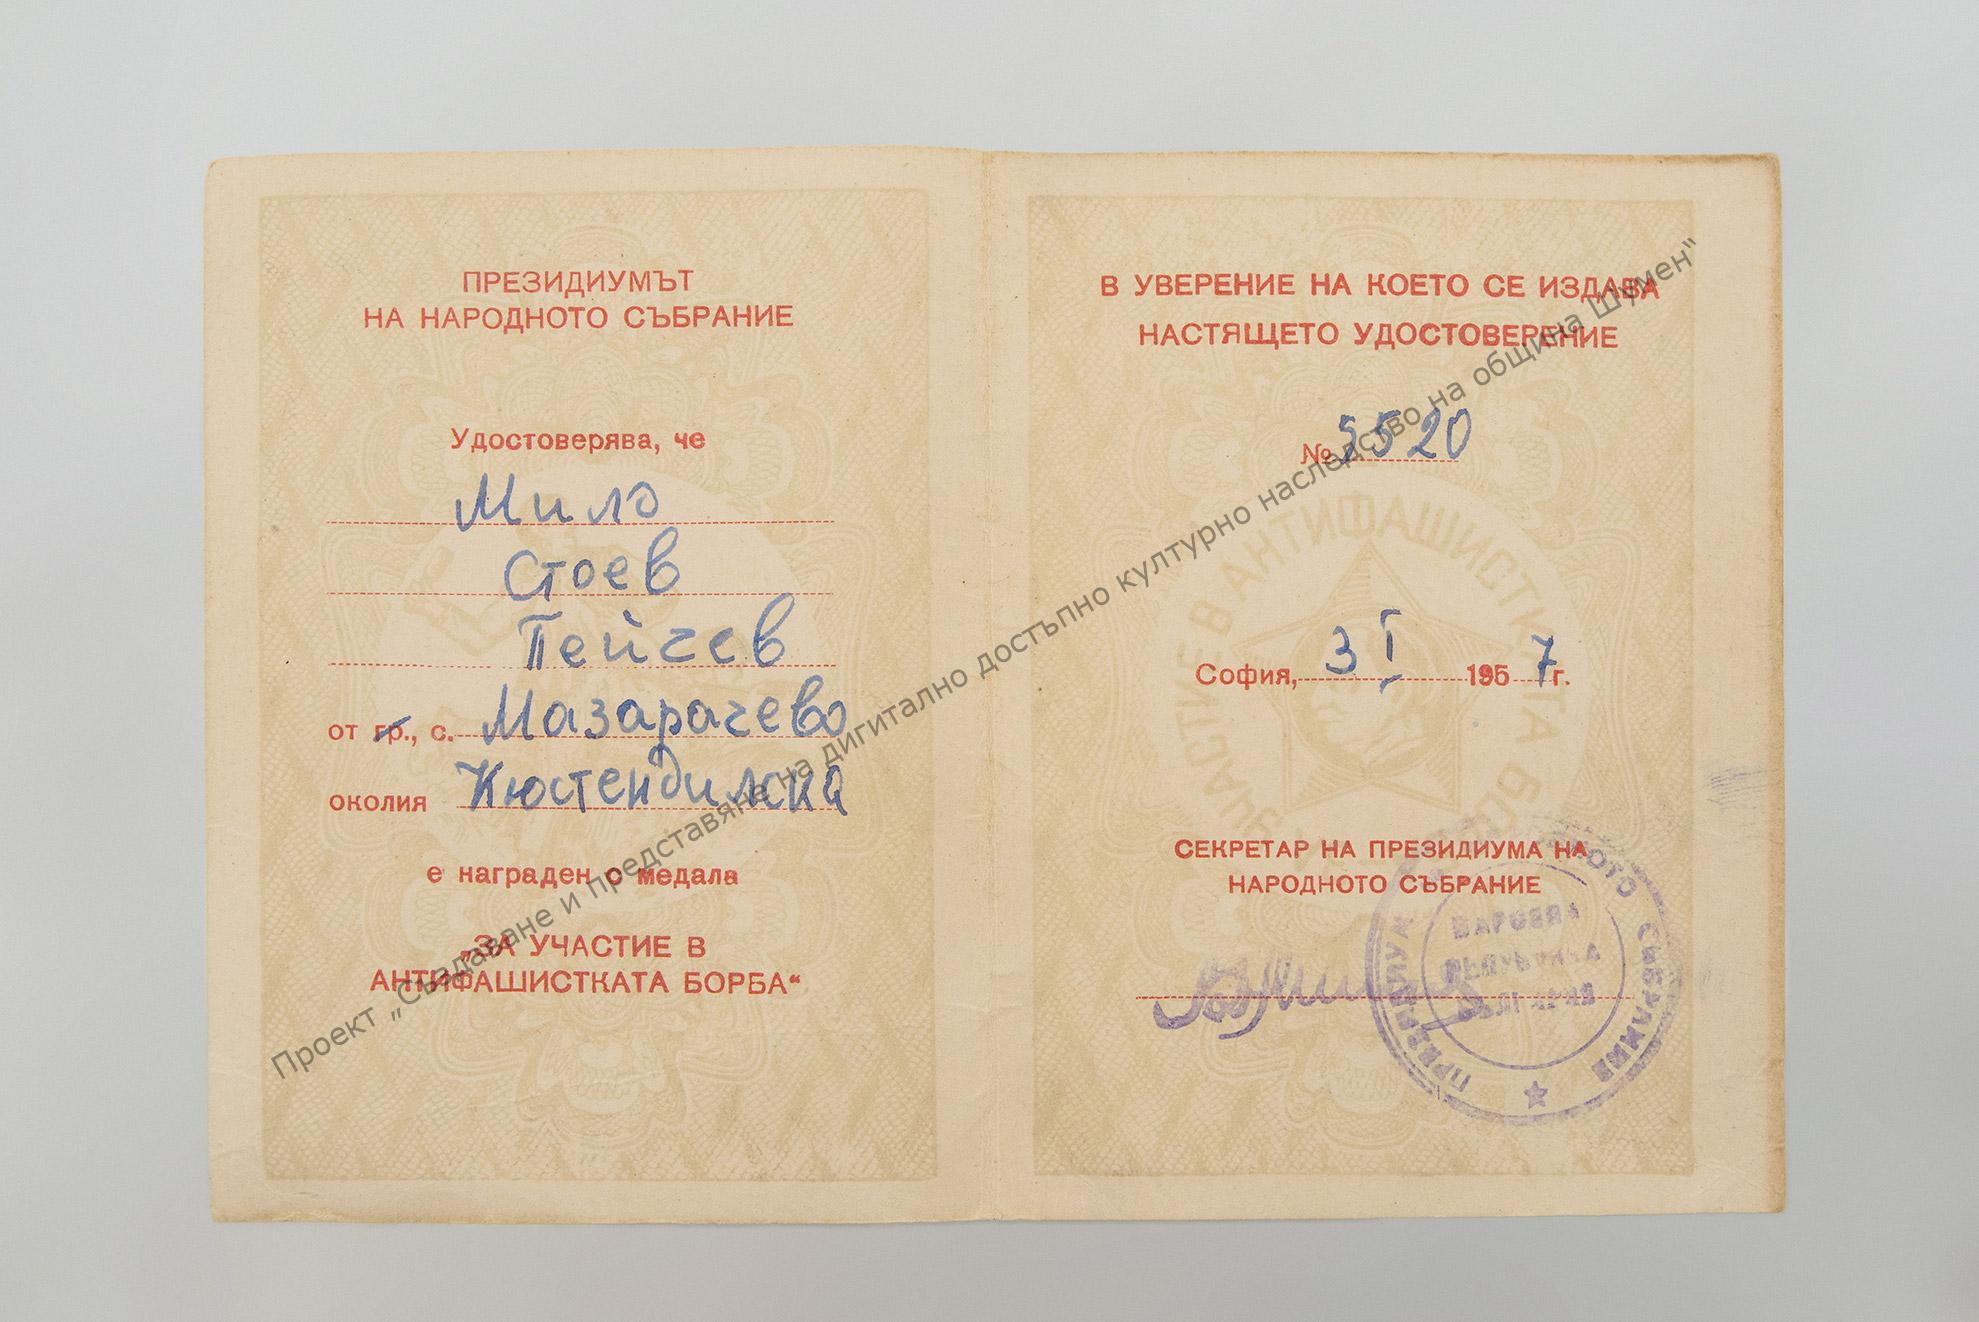 ПРЕЗИДИУМЪТ
НА НАРОДНОТО СЪБРАНИЕ
Удостоверява, че
Мило
Стоев
Пейчев
от гр., с. Мазарачево
околия Кюстендилска
е награден с медала
„ЗА УЧАСТИЕ В
АНТИФАШИСТКАТА БОРБА“
В УВЕРЕНИЕ НА КОЕТО СЕ ИЗДАВА
НАСТЯЩЕТО УДОСТОВЕРЕНИЕ
№ 5520
УЧАСТИЕ В АНТИФАШИСТКАТА БОРБА
София, 3 I 1957 г.
СЕКРЕТАР НА ПРЕЗИДИУМА НА
НАРОДНОТО СЪБРАНИЕ
ПРЕЗИДИУМ НА НАРОДНОТО СЪБРАНИЕ
НАРОДНА
РЕПУБЛИКА
БЪЛГАРИЯ
Проект „Създаване и представяне на дигитално достъпно културно наследство на община Шумен"